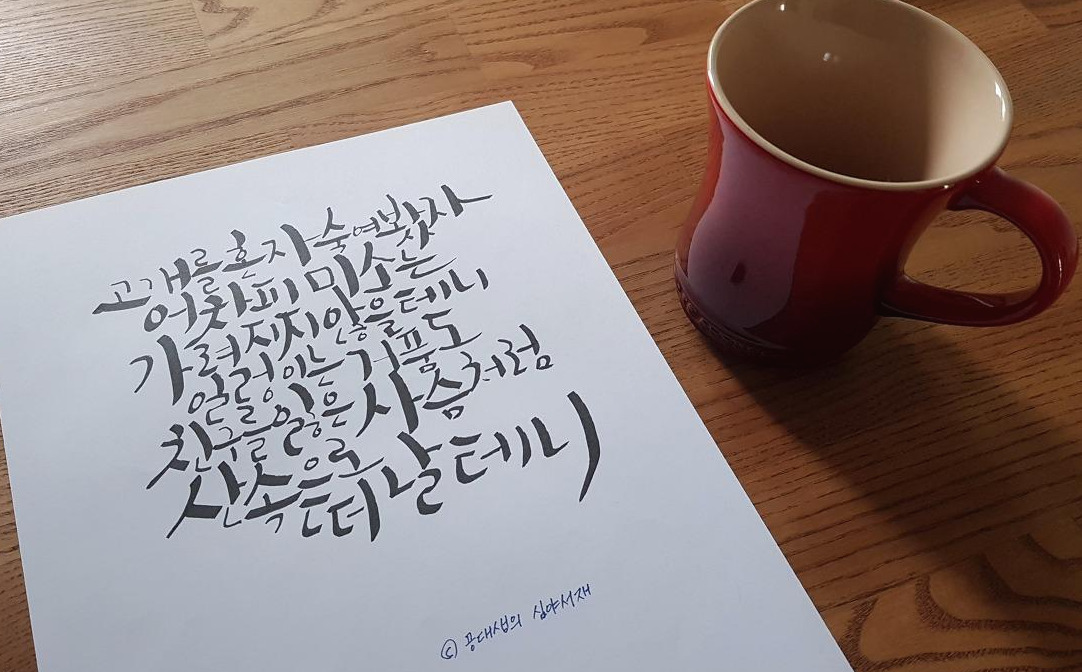 고개를 혼자 숙여봤자
어차피 미소는
가려지지 않을테니
일렁이는 거품도
친구를 잃은 사슴처럼
산속으로 떠날테니
ⓒ 공대생의 심야서재